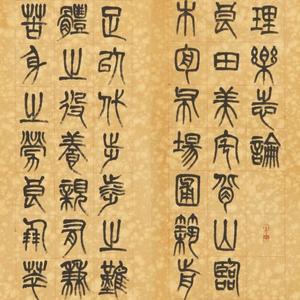 理樂志論
良田美宅背山臨
木周布場圃築前
足以代步涉之難
體之役養親有兼
苦身之勞良朋萃